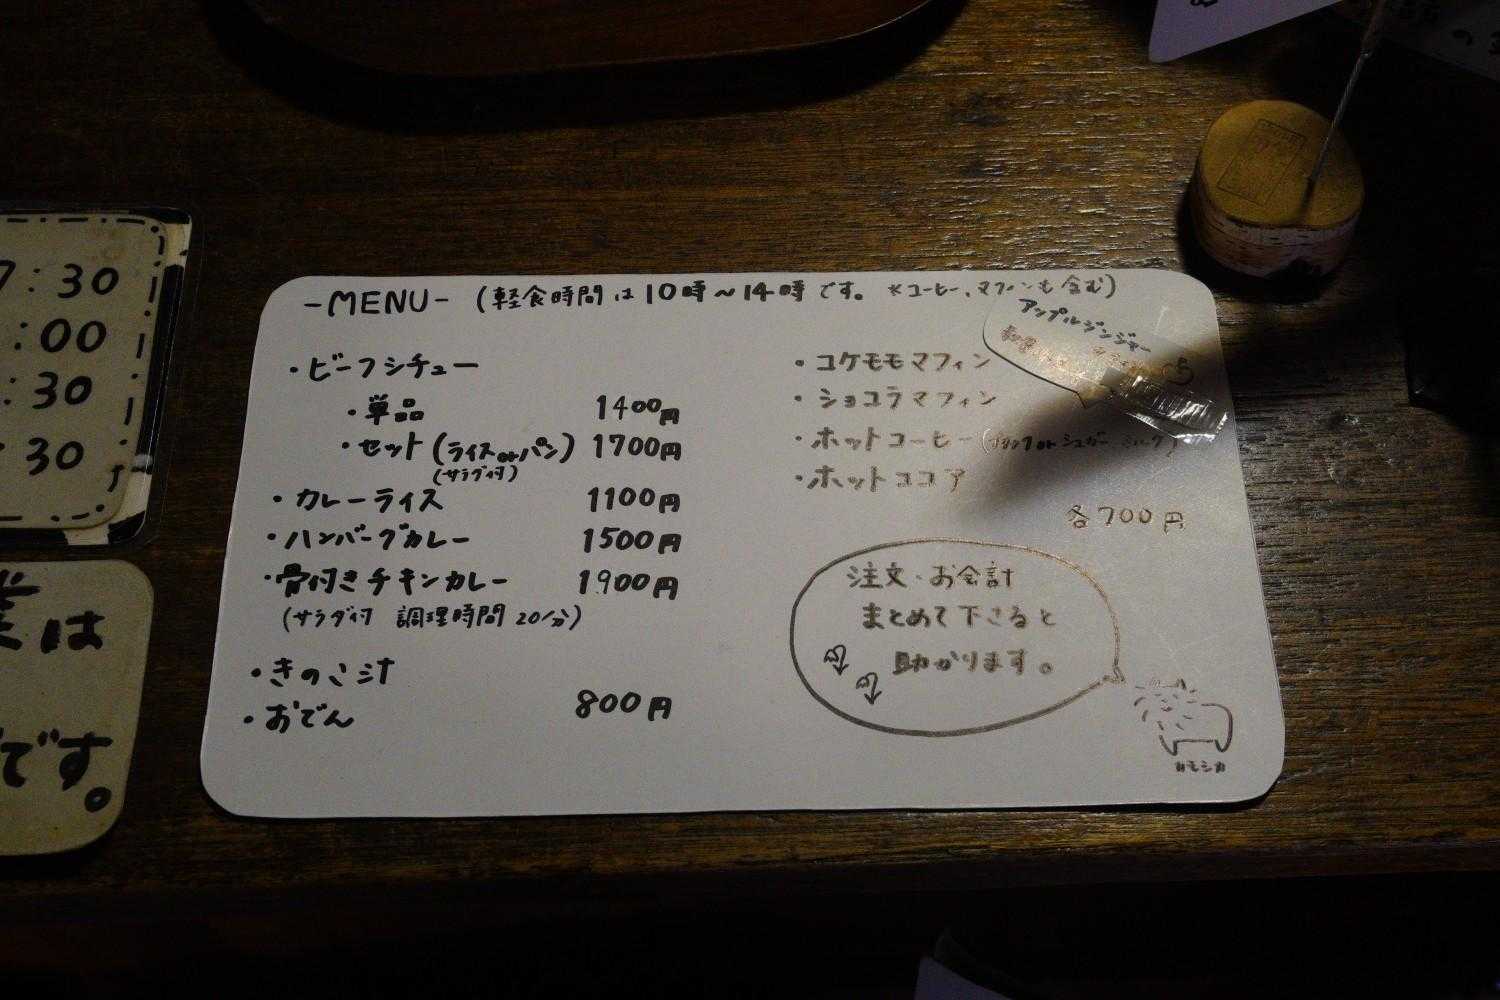 -MENU- (軽食時間は10時~14時です。 *コーヒー、マフィンも含む)
・ビーフシチュー
・単品 1400円
・セット(ライスorパン) 1700円
(サラダ付)
・カレーライス 1100円
・ハンバーグカレー 1500円
・骨付きチキンカレー 1900円
(サラダ付 調理時間20分)
・きのこ汁
・おでん 800円
アップルジンジャー
・コケモモマフィン
・ショコラマフィン
・ホットコーヒー(ブラックorシュガー、ミルク)
・ホットココア
各700円
注文・お会計
まとめて下さると
助かります。
カモシカ
7:30
:00
:30
:30
業は
です。
の